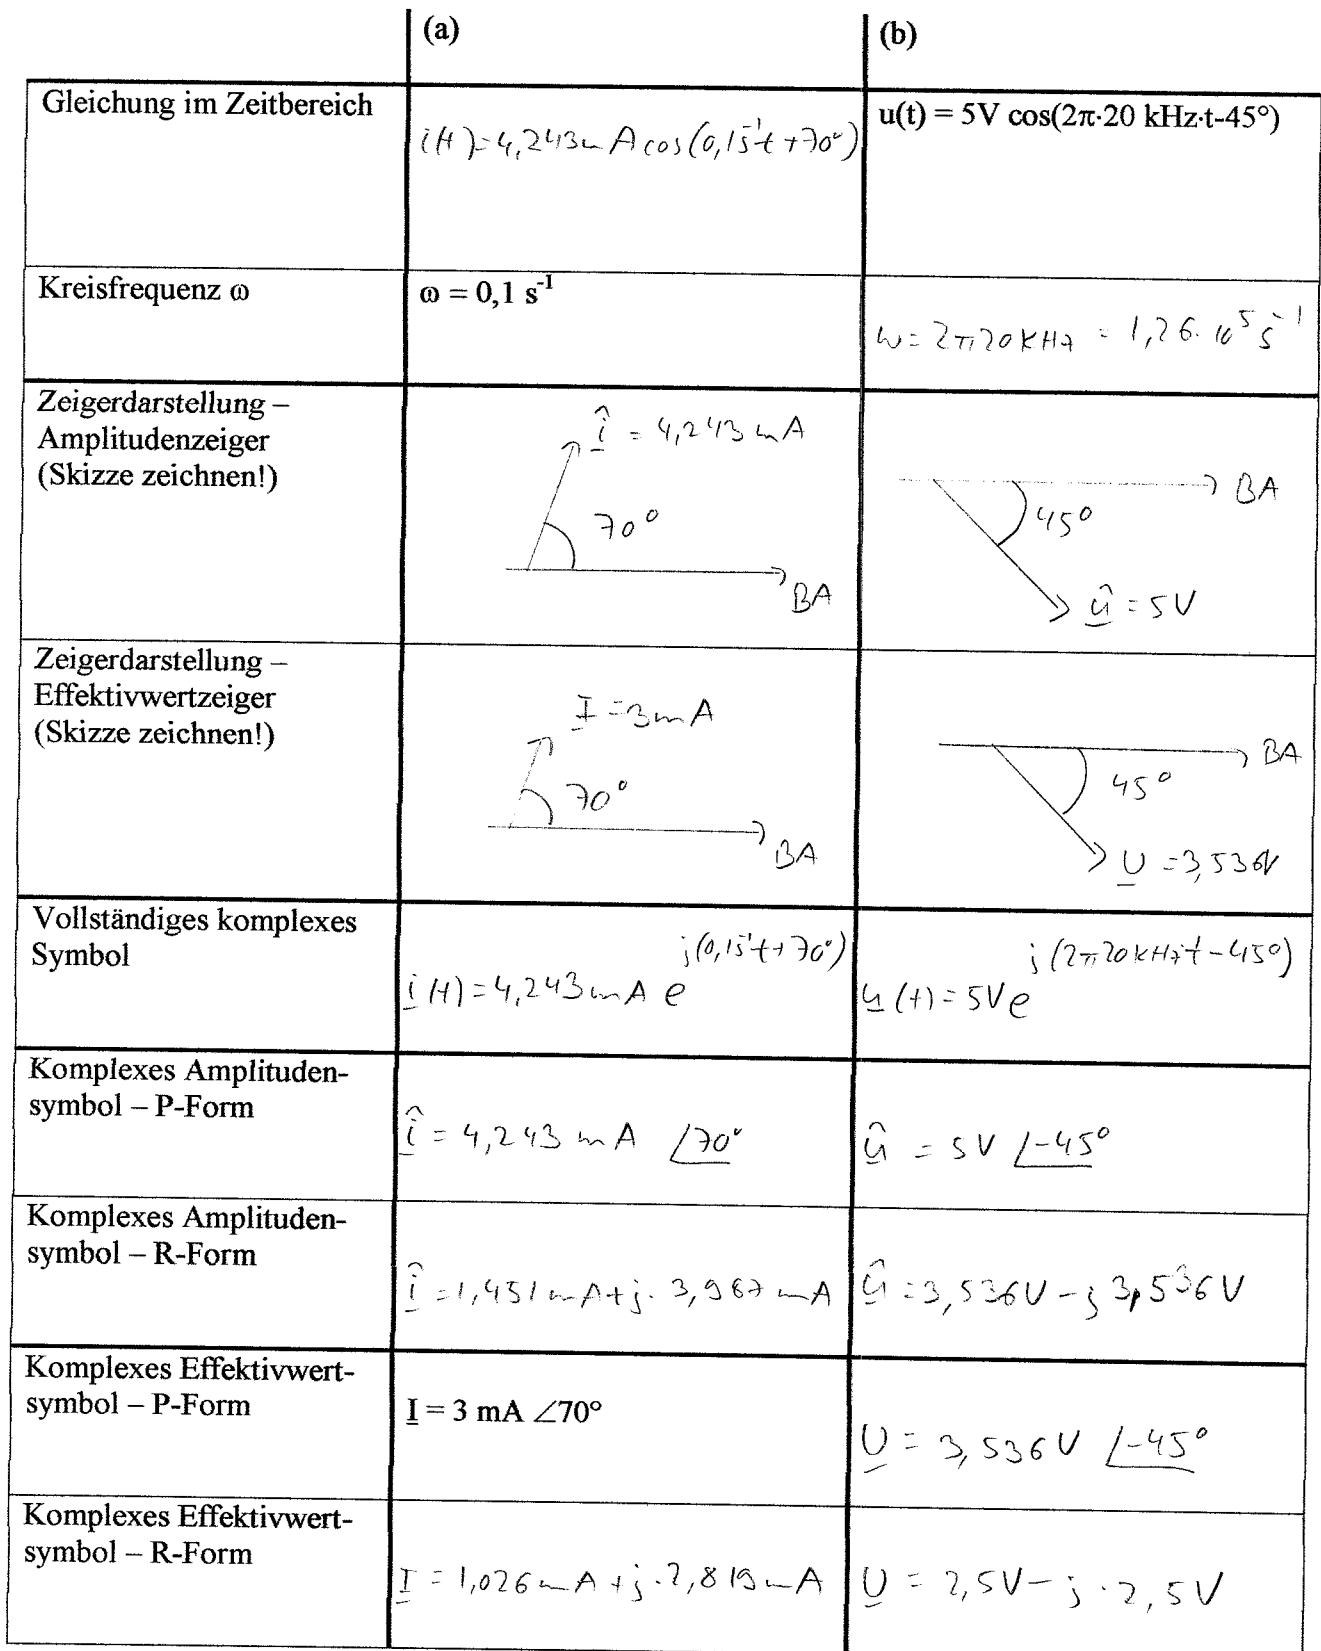 (a) (b)
Gleichung im Zeitbereich
i(t)=4,243mA cos(0,1s⁻¹t+70°)
u(t) = 5V cos(2π·20 kHz·t-45°)
Kreisfrequenz ω
ω = 0,1 s⁻¹
ω = 2π20kHz = 1,26·10⁵ s⁻¹
Zeigerdarstellung –
Amplitudenzeiger
(Skizze zeichnen!)
î = 4,243 mA
70°
BA
BA
45°
û = 5V
Zeigerdarstellung –
Effektivwertzeiger
(Skizze zeichnen!)
I = 3mA
70°
BA
BA
45°
U = 3,536V
Vollständiges komplexes
Symbol
i(t) = 4,243mA e^j(0,1s⁻¹t+70°)
u(t) = 5V e^j(2π20kHz t-45°)
Komplexes Amplituden-
symbol – P-Form
î = 4,243 mA ∠70°
û = 5V ∠-45°
Komplexes Amplituden-
symbol – R-Form
î = 1,451mA+j·3,987mA
û = 3,536V-j 3,536V
Komplexes Effektivwert-
symbol – P-Form
I = 3 mA ∠70°
U = 3,536V ∠-45°
Komplexes Effektivwert-
symbol – R-Form
I = 1,026mA+j·2,819mA
U = 2,5V-j·2,5V